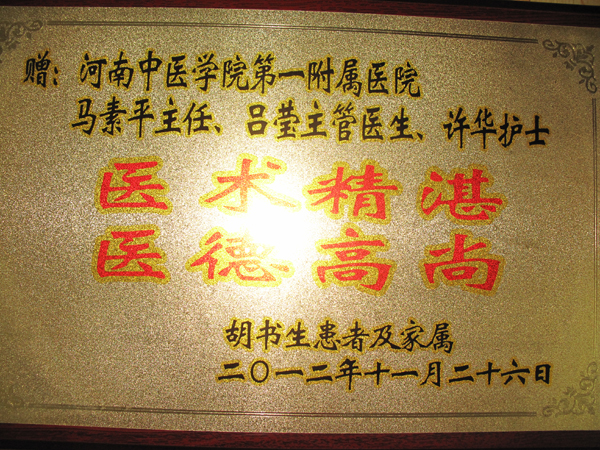 赠：河南中医学院第一附属医院
马素平主任、吕莹主管医生、许华护士
医术精湛
医德高尚
胡书生患者及家属
二〇一二年十一月二十六日